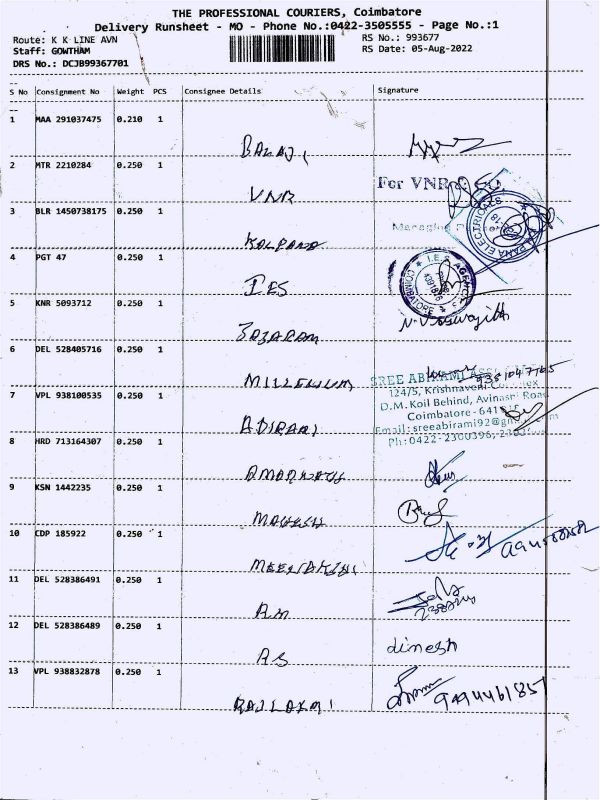 THE PROFESSIONAL COURIERS, Coimbatore
Delivery Runsheet - MO - Phone No.:0422-3505555 - Page No.:1
Route: K K LINE AVN
RS No.: 993677
Staff: GOWTHAM
RS Date: 05-Aug-2022
DRS No.: DCJB99367701
S No Consignment No Weight PCS Consignee Details Signature
1 MAA 291037475 0.210 1
BALAJI
2 MTR 2210284 0.250 1
VNR For VNR
3 BLR 1450738175 0.250 1
KALPANA
4 PGT 47 0.250 1
IES
5 KNR 5093712 0.250 1
6 DEL 528405716 0.250 1
MILLENIUM
SREE ABIRAMI
7 VPL 938100535 0.250 1
124/5, Krishnaveni
D.M. Koil Behind, Avinasi Road
Coimbatore - 641
ABIRAMI
Email: sreeabirami92@
8 HRD 713164307 0.250 1
Ph: 0422-2300396,
AMARNATH
9 KSN 1442235 0.250 1
MAHESH
10 CDP 185922 0.250 1
MEENAKSHI
11 DEL 528386491 0.250 1
AM
12 DEL 528386489 0.250 1
dinesh
AS
13 VPL 938832878 0.250 1
RAJLAXMI